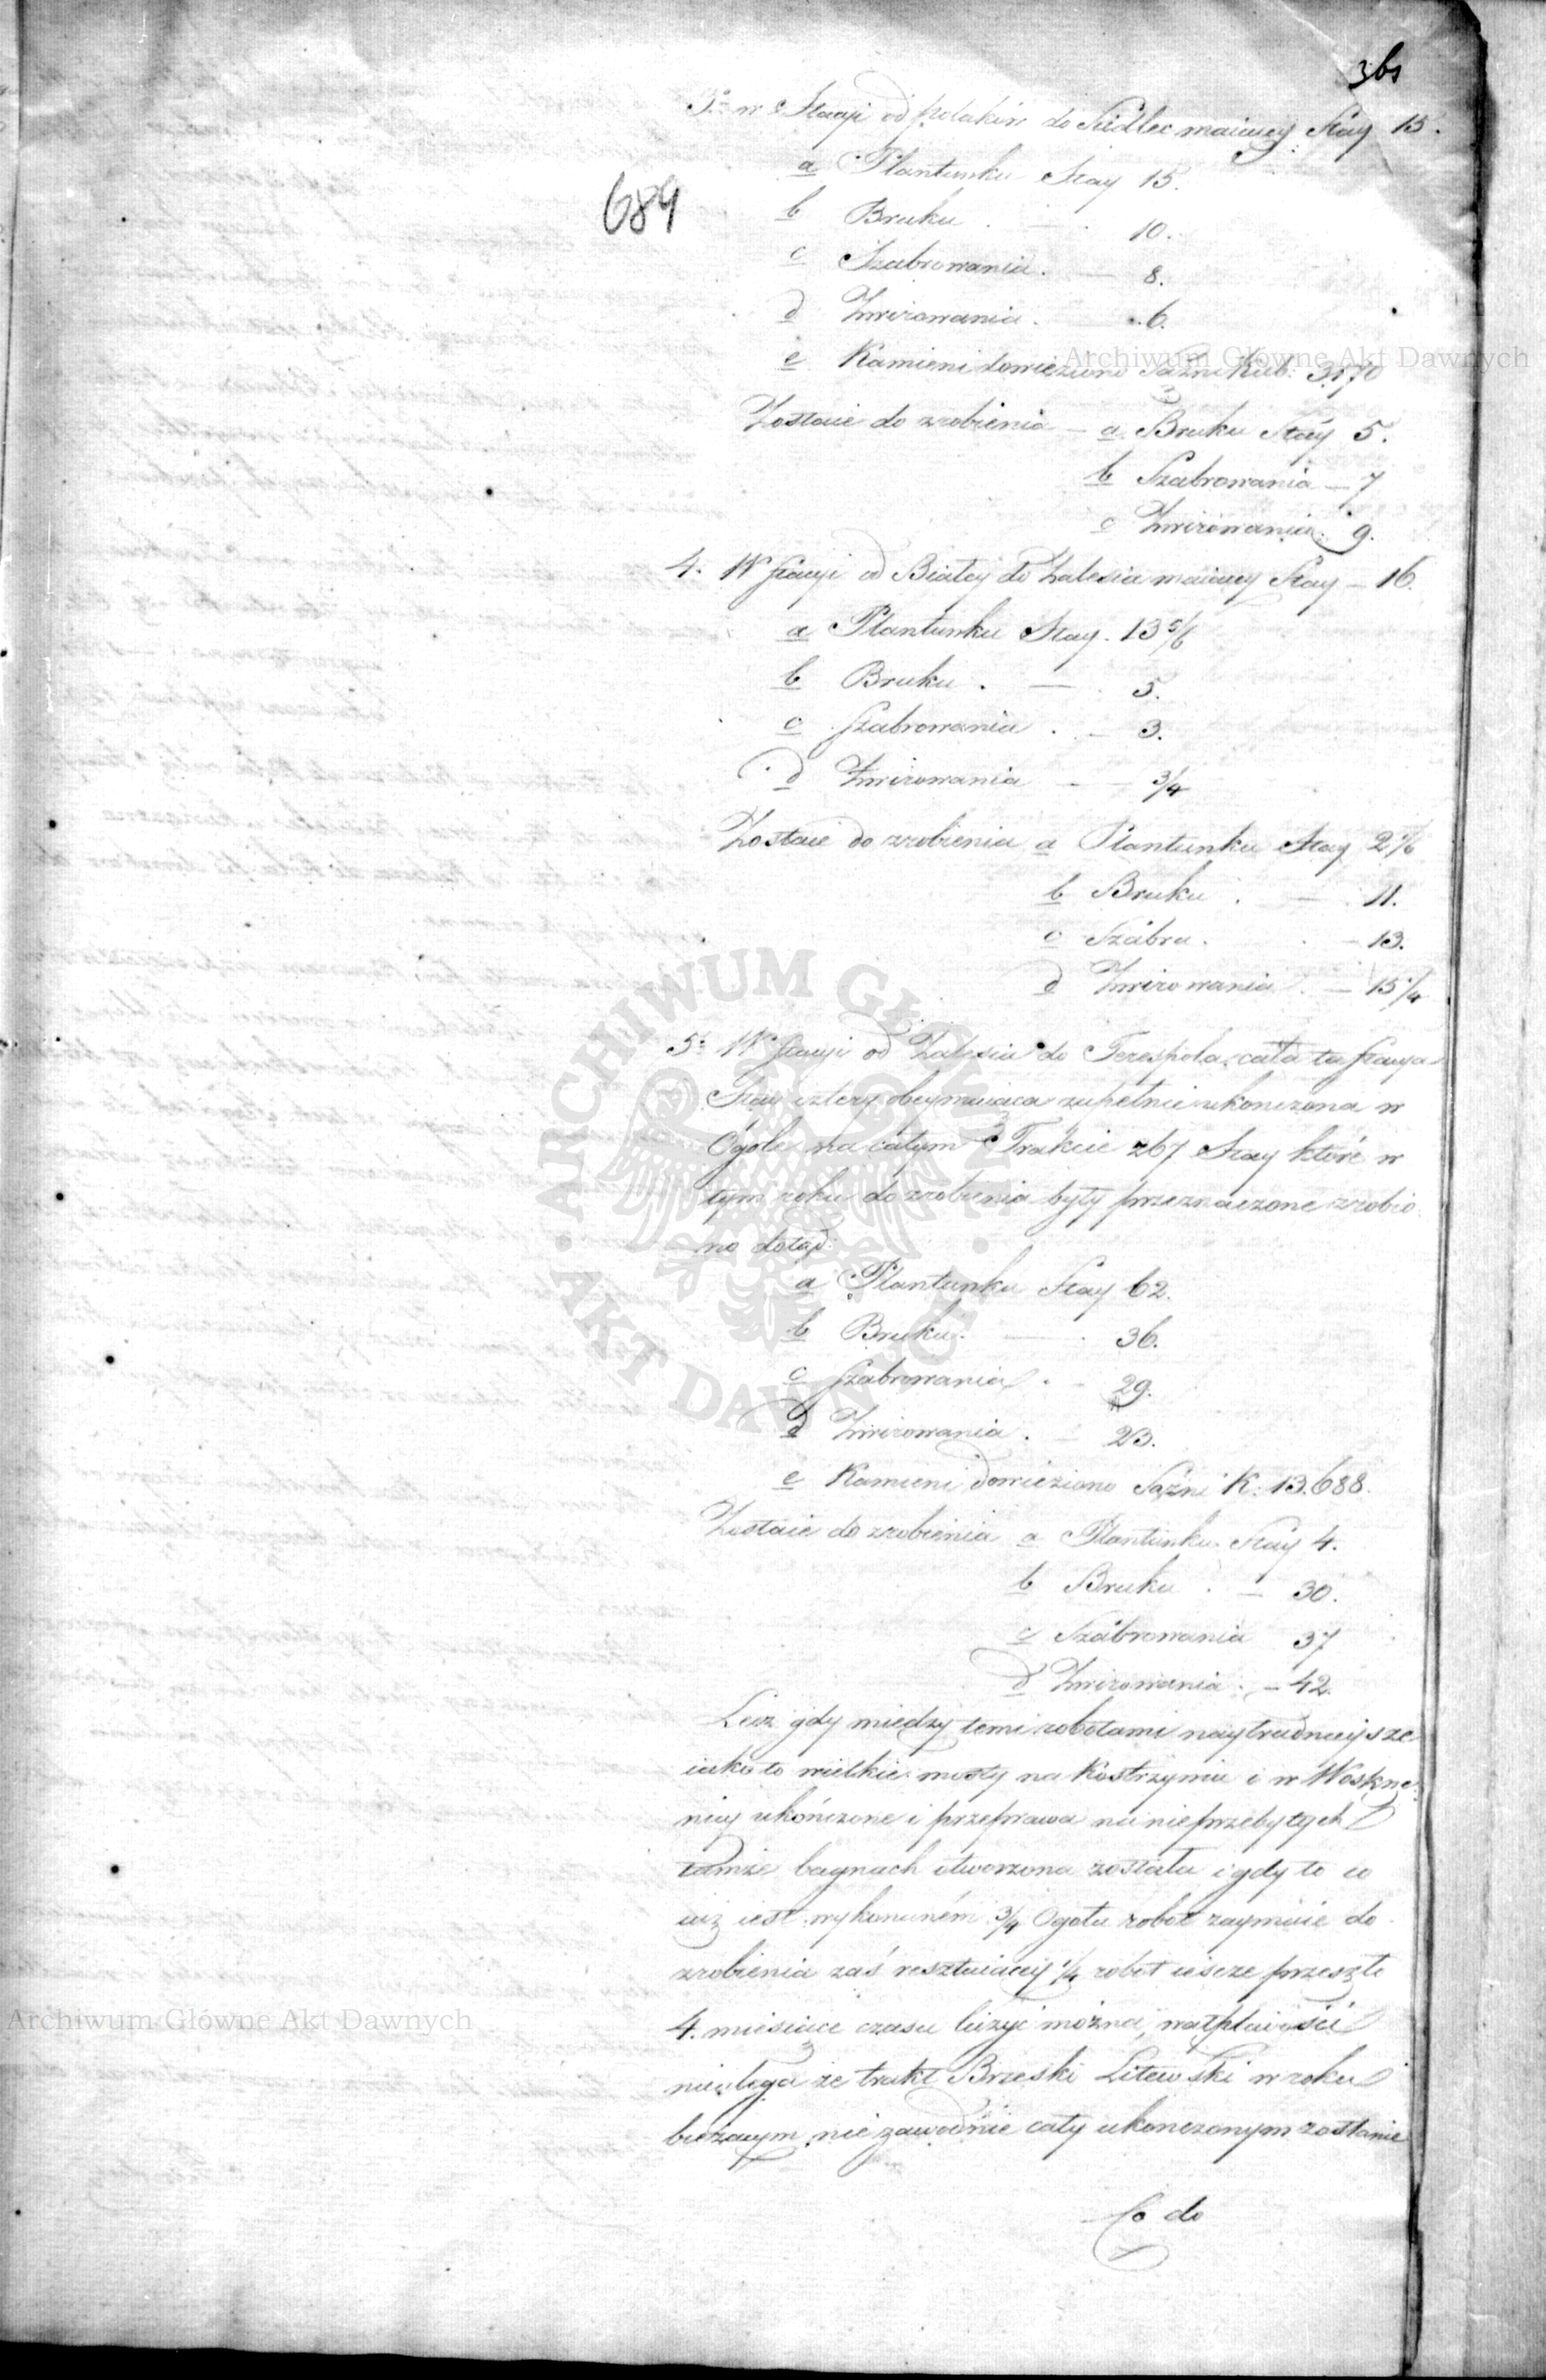 361
684
3o w Stacyi od Polaków do Siedlec maiącey Stay 15.
a Plantunku Stay 15.
b Bruku . — . 10.
c Szabrowania . — 8.
d Żwirowania . — 6.
e Kamieni dowieziono Sążni Kub: 3170
Zostaie do zrobienia — a Bruku Stay 5.
b Szabrowania — 7
c Żwirowania . 9.
4. W Stacyi od Białey do Zalesia maiącey Stay — 16.
a Plantunku Stay . 13 5/6
b Bruku . — . 5.
c Szabrowania . — 3.
d Żwirowania — — 3/4
Zostaie do zrobienia a Plantunku Stay 2 1/6
b Bruku . — 11.
c Szabru . . — 13.
d Żwirowania . — 15 1/4
5o W Stacyi od Zalesia do Terespola, cała ta Stacya
Stay cztery obeymuiąca zupełnie ukonczona w
Ogole na całym Trakcie z 67 Stay które w
tym roku do zrobienia były przeznaczone zrobio
no dotąd:
a Plantunku Stay 62.
b Bruku . — . 36.
c Szabrowania . — 29.
d Żwirowania . — 23.
e Kamieni dowieziono Sążni K. 13.688.
Zostaie do zrobienia a Plantunku Stay 4.
b Bruku . — 30.
c Szabrowania 37
d Żwirowania . — 42.
Lecz gdy między temi robotami naytrudnieysze
iako to wielkie mosty na Kostrzyniu i w Woskrze
nicy ukończone i przeprawa na nieprzebytych
tamże bagnach otworzona została i gdy to co
iuż iest wykonaném 3/4 Ogołu robot zaymuie do
zrobienia zaś resztuiącey 1/4 robot iescze przeszło
4. miesiące czasu liczyć można, wątpliwości
nieulega że trakt Brzeski Litewski w roku
bieżącym niezawodnie cały ukonczonym zostanie
Co do
Archiwum Główne Akt Dawnych
ARCHIWUM GŁÓWNE · AKT DAWNYCH ·
Archiwum Główne Akt Dawnych